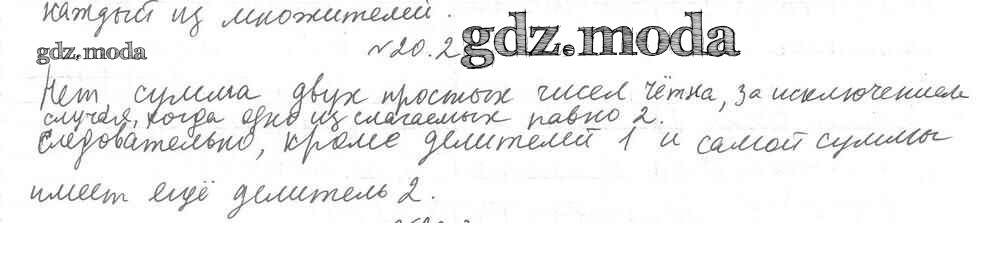 каждый из множителей.
gdz.moda №20.2 gdz.moda
Нет, сумма двух простых чисел чётна, за исключением
случая, когда одно из слагаемых равно 2.
Следовательно, кроме делителей 1 и самой суммы
имеет ещё делитель 2.